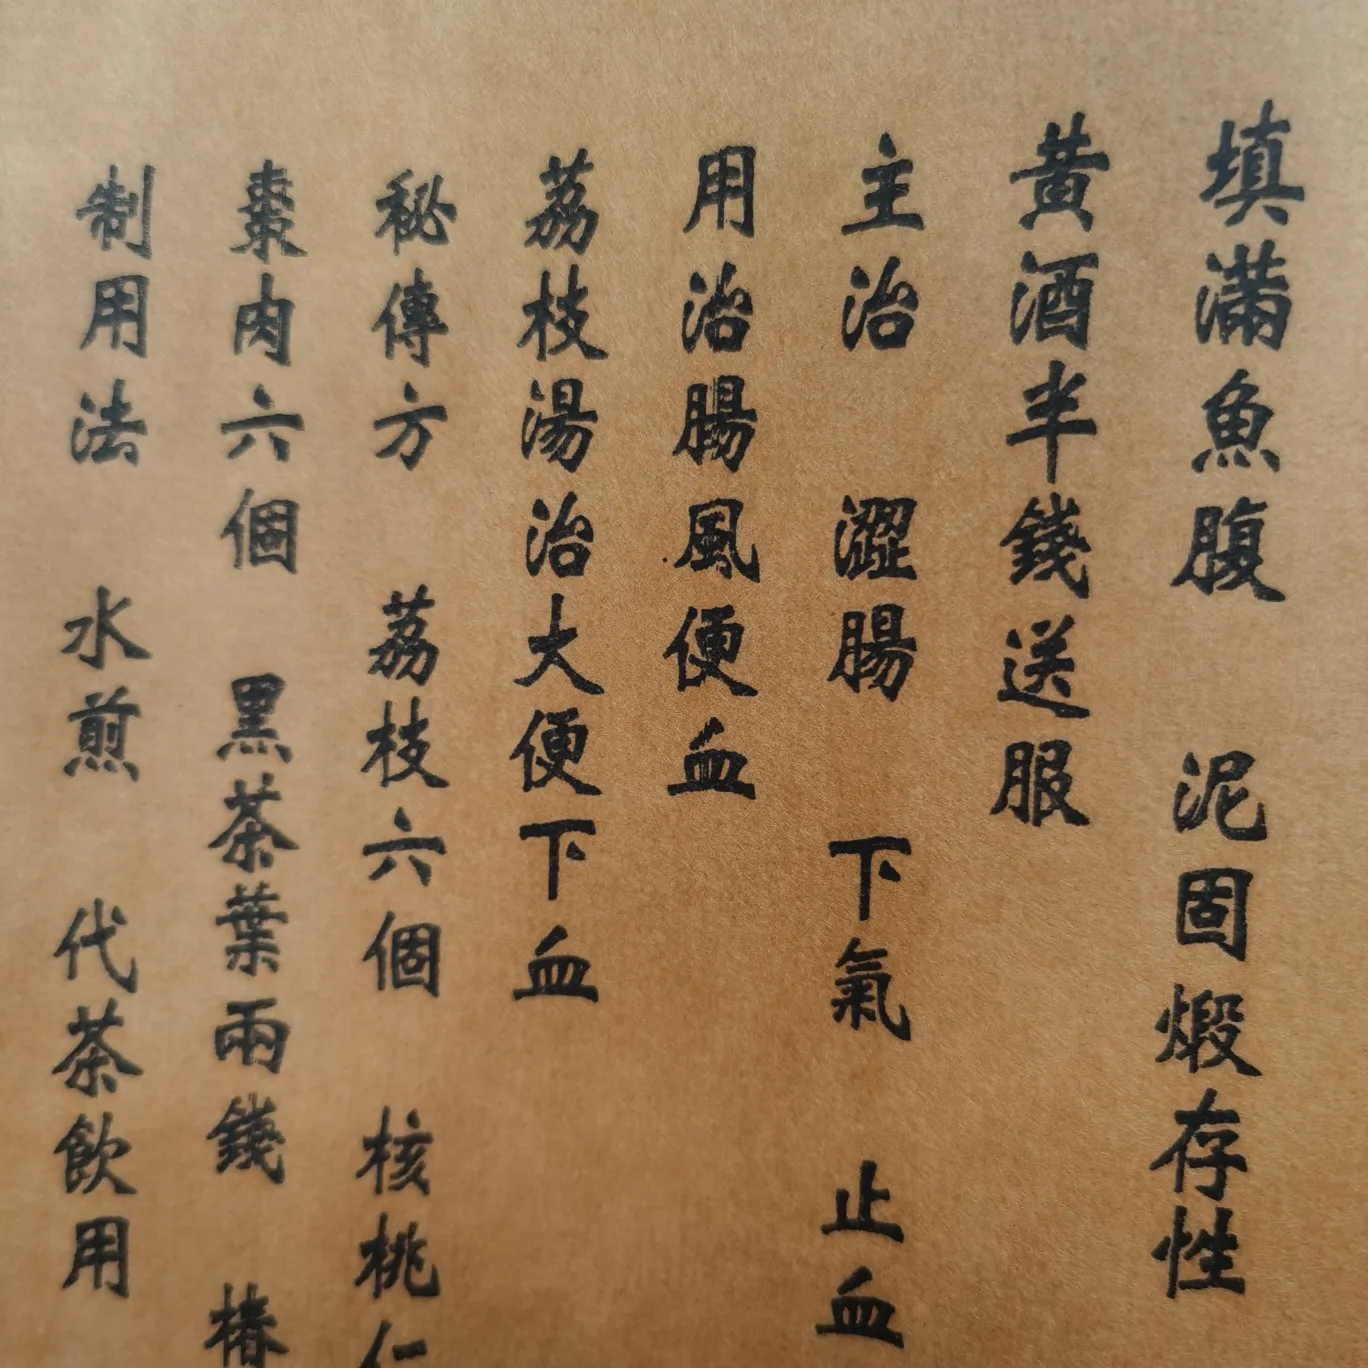 填滿魚腹 泥固煅存性
黃酒半錢送服
主治 澀腸 下氣 止血
用治腸風便血
荔枝湯治大便下血
秘傳方 荔枝六個 核桃仁
棗肉六個 黑茶葉兩錢 椿
制用法 水煎 代茶飲用